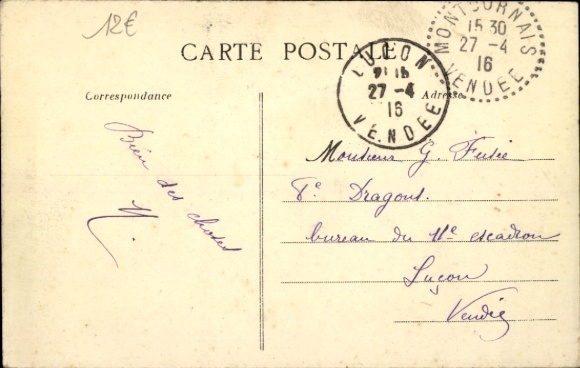 12€
CARTE POSTALE
MONTOURNAIS
15 30
27 - 4
16
VENDEE
LUÇON
27 - 4
16
VENDEE
Correspondance
Adresse
Bien des choses
Monsieur G.
8e Dragons.
bureau du 11e escadron
Luçon
Vendée